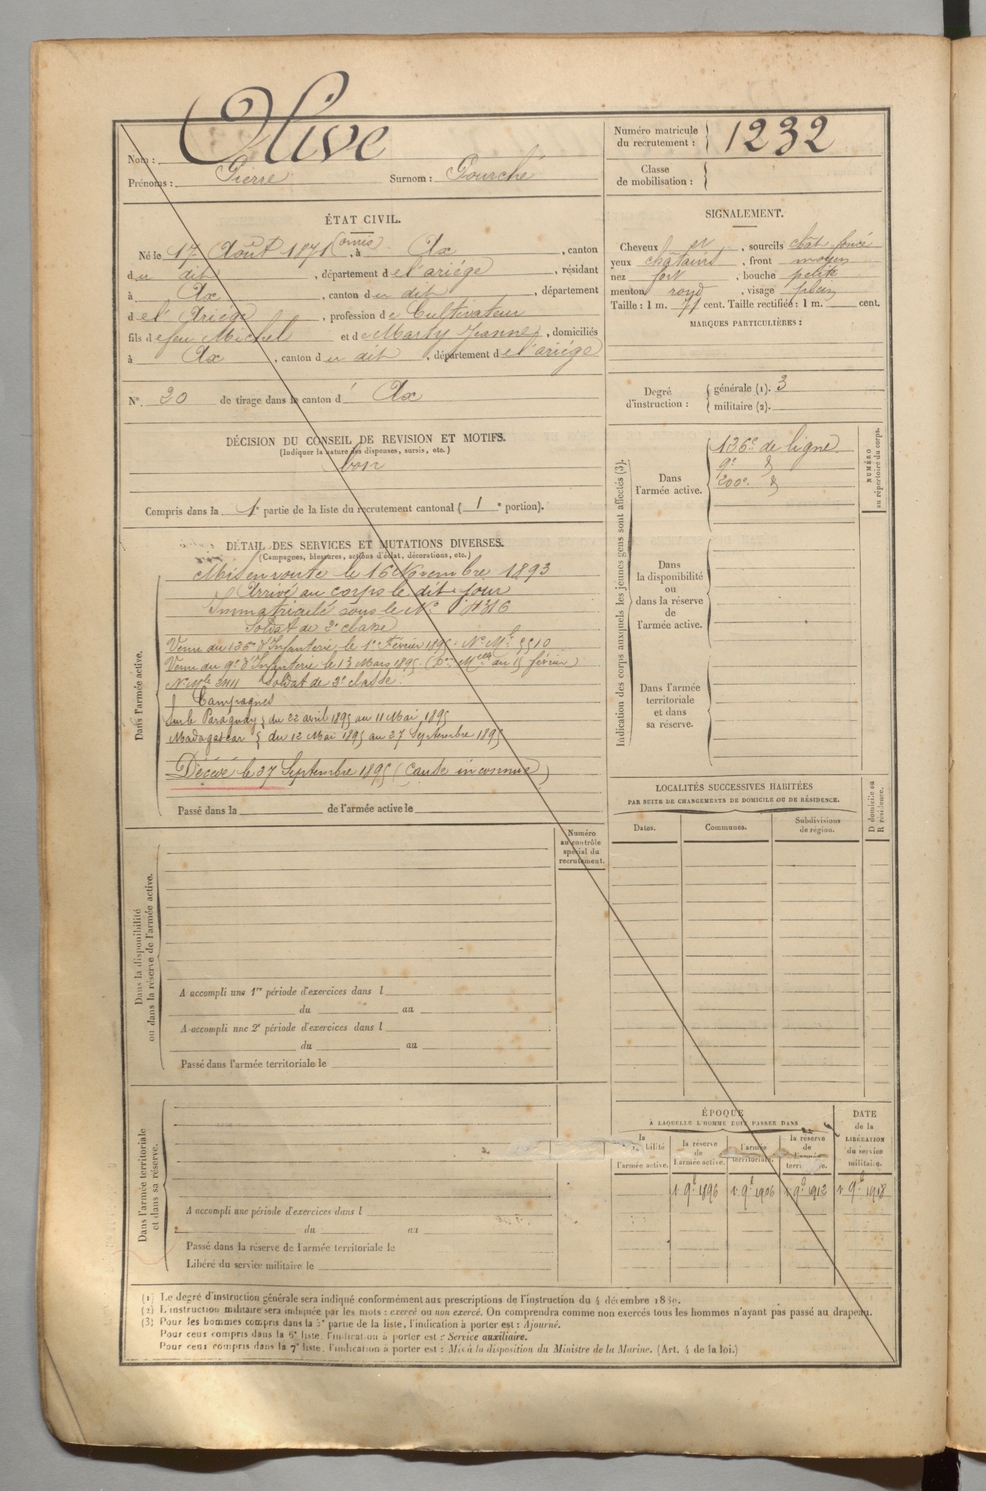 Nom : Olive
Prénoms : Pierre Surnom : Gourché
Numéro matricule du recrutement : 1232
Classe de mobilisation :
ÉTAT CIVIL.
Né le 17 Août 1871 (omis), à Ax, canton
du dit, département de l'ariège, résidant
à Ax, canton du dit, département
de l'Ariège, profession de Cultivateur
fils de feu Michel et de Marty Jeanne, domiciliés
à Ax, canton du dit, département de l'ariège
N° 30 de tirage dans le canton d' Ax
SIGNALEMENT.
Cheveux et, sourcils chat. foncé
yeux chatains, front moyen
nez fort, bouche petite
menton rond, visage plein
Taille : 1 m. 71 cent. Taille rectifiée : 1 m. cent.
MARQUES PARTICULIÈRES :
Degré d'instruction : générale (1). 3
militaire (2).
DÉCISION DU CONSEIL DE REVISION ET MOTIFS.
(Indiquer la nature des dispenses, sursis, etc.)
bon
Compris dans la 1e partie de la liste du recrutement cantonal ( 1 e portion).
DÉTAIL DES SERVICES ET MUTATIONS DIVERSES.
(Campagnes, blessures, actions d'éclat, décorations, etc.)
Dans l'armée active.
Mis en route le 16 Novembre 1893
Arrivé au corps le dit jour
Immatriculé sous le N°
Soldat de 2e classe
Venu du 136e d'Infanterie le 1er Février 1895. N° Mle 5510
Venu du 9e d'Infanterie le 13 Mars 1895
N° Mle 3411 Soldat de 2e classe.
Campagnes
sur le Paraguay du 22 avril 1895 au 11 Mai 1895
Madagascar du 12 Mai 1895 au 27 Septembre 1895
Décédé le 27 Septembre 1895 (Cause inconnue)
Passé dans la de l'armée active le
Indication des corps auxquels les jeunes gens sont affectés (3).
NUMÉRO au répertoire du corps.
Dans l'armée active.
136e de ligne
9e d
200e d
Dans la disponibilité ou dans la réserve de l'armée active.
Dans l'armée territoriale et dans sa réserve.
LOCALITÉS SUCCESSIVES HABITÉES
PAR SUITE DE CHANGEMENTS DE DOMICILE OU DE RÉSIDENCE.
Dates. Communes. Subdivisions de région.
D domicile ou R résidence.
Numéro au contrôle spécial du recrutement.
Dans la disponibilité ou dans la réserve de l'armée active.
A accompli une 1re période d'exercices dans l
du au
A accompli une 2e période d'exercices dans l
du au
Passé dans l'armée territoriale le
Dans l'armée territoriale et dans sa réserve.
A accompli une période d'exercices dans l
du au
Passé dans la réserve de l'armée territoriale le
Libéré du service militaire le
ÉPOQUE
À LAQUELLE L'HOMME DOIT PASSER DANS
la l'armée active.
la réserve de l'armée active.
l'armée territoriale.
la réserve de
DATE de la LIBÉRATION du service militaire.
1. 9e 1896 1. 9e 1906 1. 9e 1912 1. 9e 1918
(1) Le degré d'instruction générale sera indiqué conformément aux prescriptions de l'instruction du 4 décembre
(2) L'instruction militaire sera indiquée par les mots : exercé ou non exercé. On comprendra comme non exercés tous les hommes n'ayant pas passé au drapeau.
(3) Pour les hommes compris dans la 5e partie de la liste, l'indication à porter est : Ajourné.
Pour ceux compris dans la 6e liste, l'indication à porter est : Service auxiliaire.
Pour ceux compris dans la 7e liste, l'indication à porter est : Mis à la disposition du Ministre de la Marine. (Art. 4 de la loi.)